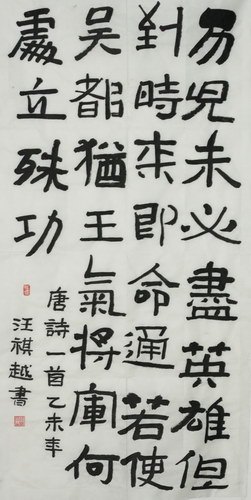 男兒未必盡英雄但
到時來即命通若使
吳都猶王氣將軍何
處立殊功
唐詩一首乙未年
汪祺越書